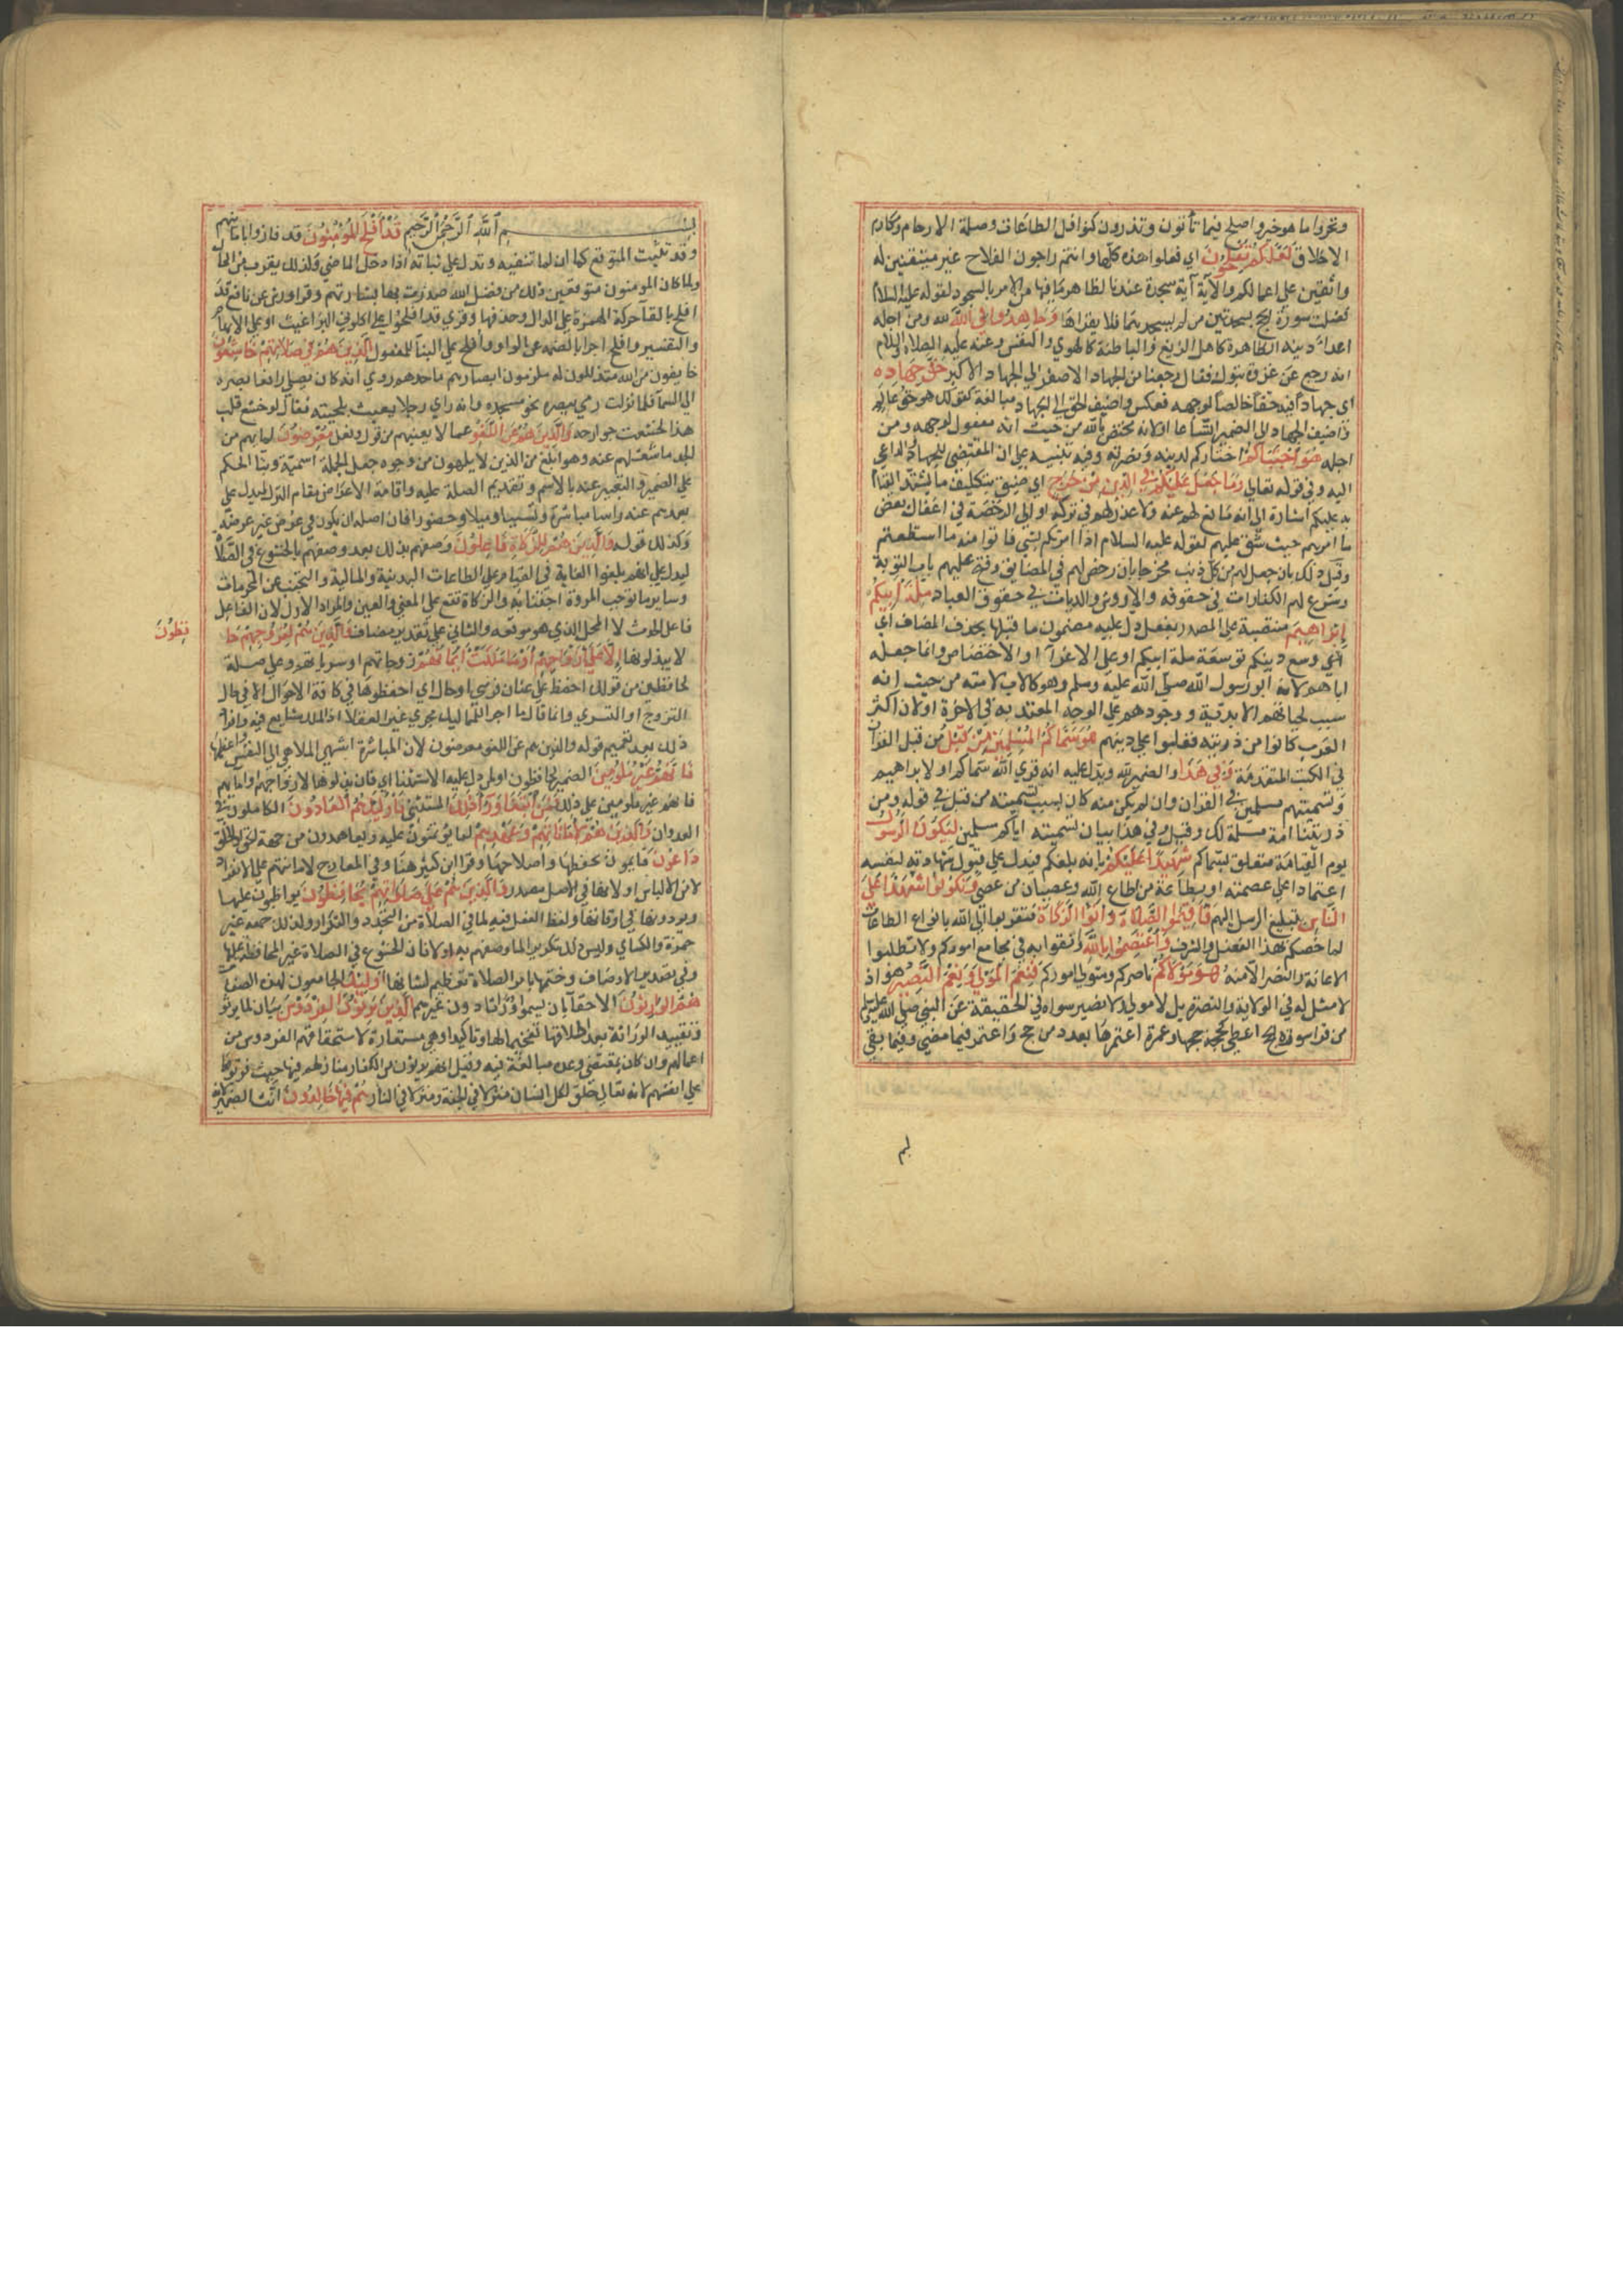 وتحروا ما هو خير واصلح فيما تأتون وتذرون كنوافل الطاعات وصلة الارحام ومكارم
الاخلاق لعلكم تفلحون اي فعلوا هذه كلها وانتم راجون الفلاح غير متيقنين له
واثقين على اعمالكم والاية آية سجدة عندنا لظاهر ما فيها من الامر بالسجود لقوله عليه السلام
فضلت سورة الحج بسجدتين من لم يسجدهما فلا يقراها وجاهدوا في الله لله ومن اجله
اعداء دينه الظاهرة كاهل الزيغ والباطنة كالهوي والنفس وعنه عليه الصلاة والسلام
انه رجع عن غزوة تبوك فقال رجعنا من الجهاد الاصغر الي الجهاد الاكبر حق جهاده
اي جهادا فيه حقا خالصا لوجهه فعكس واضيف الحق الي الجهاد مبالغة كقولك هو حق عالم
واضيف الجهاد الي الضمير اتساعا او لانه مختص بالله من حيث انه مفعول لوجهه ومن
اجله هو اجتباكم اختاركم لدينه ونصرته وفيه تنبيه على ان المقتضي للجهاد والداعي
اليه وفي قوله تعالي وما جعل عليكم في الدين من حرج اي ضيق بتكليف ما يشتد القيام
به عليكم اشارة الى انه لا مانع لهم عنه ولا عذر لهم في تركه او الى الرخصة في اغفال بعض
ما امرهم حيث شق عليهم لقوله عليه السلام اذا امرتكم بشي فاتوا منه ما استطعتم
وقيل ذلك بان جعل لهم من كل ذنب مخرجا بان رخص لهم في المضايق وفتح عليهم باب التوبة
وشرع لهم الكفارات في حقوقه والاروش والديات في حقوق العباد ملة ابيكم
ابراهيم منتصبة على المصدر بفعل دل عليه مضمون ما قبلها بحذف المضاف اي
وسع دينكم توسعة ملة ابيكم او على الاغراء او الاختصاص وانما جعله
اباهم لانه ابو رسول الله صلى الله عليه وسلم وهو كالاب لامته من حيث انه
سبب لحياتهم الابدية ووجودهم على الوجه المعتد به في الاخرة او لان اكثر
العرب كانوا من ذريته فغلبوا على دينهم هو سماكم المسلمين من قبل من قبل القران
في الكتب المتقدمة وفي هذا والضمير لله ويدل عليه انه قري الله سماكم او لابراهيم
وتسميتهم مسلمين في القران وان لم يكن منه كان بسبب تسميته من قبل في قوله ومن
ذريتنا امة مسلمة لك وقيل وفي هذا بيان تسميته اياكم مسلمين ليكون الرسول
يوم القيامة متعلق بسماكم شهيدا عليكم بانه بلغكم فيدل على قبول شهادته لنفسه
اعتمادا على عصمته او بطاعة من اطاع الله وعصيان من عصي وتكونوا شهداء على
الناس بتبليغ الرسل اليهم فاقيموا الصلاة واتوا الزكاة فتقربوا الي الله بانواع الطاعات
لما خصكم بهذا الفضل والشرف واعتصموا بالله وثقوا به في مجامع اموركم ولا تطلبوا
الاعانة والنصر الا منه هو مولاكم ناصركم ومتولي اموركم فنعم المولي ونعم النصير هو اذ
لا مثل له في الولاية والنصرة بل لا مولي ولا نصير سواه في الحقيقة عن النبي صلى الله عليه وسلم
من قرا سورة الحج اعطي كحجة حجها وعمرة اعتمرها بعدد من حج واعتمر فيما مضي وفيما بقي
بسم الله الرحمن الرحيم قد افلح المؤمنون قد فازوا بامانيهم
وقد تثبت المتوقع كما ان لما تنفيه وتدل على ثباته اذا دخل الماضي ولذلك يقربه من الحال
ولما كان المؤمنون متوقعين ذلك من فضل الله صدرت بها بشارتهم وقرا ورش عن نافع قد
افلح بالقاء حركة الهمزة على الدال وحذفها وقري قد افلحوا على اكلوني البراغيث او على الابهام
والتفسير وافلح اجزاء بالضمة عن الواو وافلح على البناء للمفعول الذين هم في صلاتهم خاشعون
خايفون من الله متذللون له ملزمون ابصارهم مساجدهم روي انه كان يصلي رافعا بصره
الي السماء فلما نزلت رمي ببصره نحو مسجده وانه راي رجلا يعبث بلحيته فقال لو خشع قلب
هذا لخشعت جوارحه والذين هم عن اللغو عما لا يعنيهم من قول وفعل معرضون لما بهم من
الجد ما شغلهم عنه وهو ابلغ من الذين لا يلهون من وجوه جعل الجملة اسمية وبنا الحكم
علي الضمير والتعبير عنه بالاسم وتقديم الصلة عليه واقامة الاعراض مقام الترك ليدل على
بعدهم عنه راسا مباشرة وتسببا وميلا وحضورا فان اصله ان يكون في عرض غير عرضه
وكذلك قوله والذين هم للزكاة فاعلون وصفهم بذلك بعد وصفهم بالخشوع في الصلاة
ليدل على انهم بلغوا الغاية في القيام على الطاعات البدنية والمالية والتجنب عن المحرمات
وساير ما توجب المروة اجتنابه والزكاة تقع على المعني والعين والمراد الاول لان الفاعل
فاعل الحدث لا المحل الذي هو موقعه والثاني على تقدير مضاف والذين هم لفروجهم حا
فظون
لا يبذلونها الا على ازواجهم او ما ملكت ايمانهم زوجاتهم او سرياتهم وعلى صلة
لحافظين من قولك احفظ على عنان فرسي او حال اي احفظوها في كافة الاحوال الا في حال
التزوج او التسري وانما قال ما اجراء للمماليك مجري غير العقلاء اذ الملك شايع فيه وافراد
ذلك بعد تعميم قوله والذين هم عن اللغو معرضون لان المباشرة اشهي الملاهي الي النفس واعظمها
فانهم غير ملومين الضمير لحافظون او لمن دل عليه الاستثناء اي فان بذلوها لازواجهم او امائهم
فانهم غير ملومين على ذلك فمن ابتغي وراء ذلك المستثني فاولئك هم العادون الكاملون في
العدوان والذين هم لاماناتهم وعهدهم لما يؤتمنون عليه ويعاهدون من جهة الحق او الخلق
راعون قايمون بحفظها واصلاحها وقرا ابن كثير هنا وفي المعارج لامانتهم على الافراد
لامن الالباس او لانها في الاصل مصدر والذين هم على صلواتهم يحافظون يواظبون عليها
ويودونها في اوقاتها ولفظ الفعل فيه لما في الصلاة من التجدد والتكرار ولذلك جمعه غير
حمزة والكسائي وليس ذلك تكريرا لما وصفهم به اولا فان الخشوع في الصلاة غير المحافظة عليها
وفي تصدير الاوصاف وختمها بامر الصلاة تعظيم لشانها اولئك الجامعون لهذه الصفات
هم الوارثون الاحقاء بان يسموا وراثا دون غيرهم الذين يرثون الفردوس بيان لما يرثونه
وتقييد الوراثة بعد اطلاقها تفخيما لها وتاكيدا وهي مستعارة لاستحقاقهم الفردوس من
اعمالهم وان كان بمقتضي وعده مبالغة فيه وقيل انهم يرثون من الكفار منازلهم فيها حيث فوتوها
علي انفسهم لانه تعالي خلق لكل انسان منزلا في الجنة ومنزلا في النار هم فيها خالدون انث الضمير